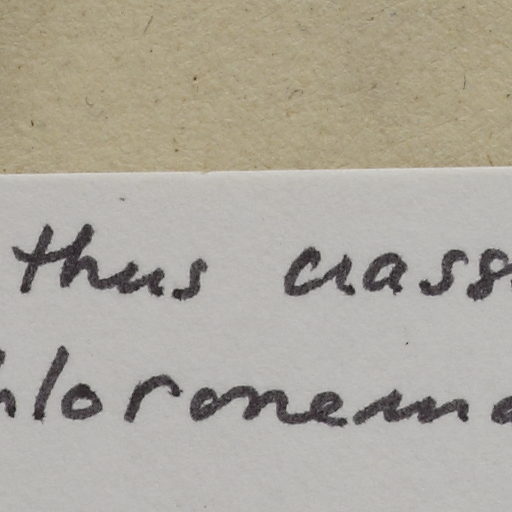 thus crass
hloronema